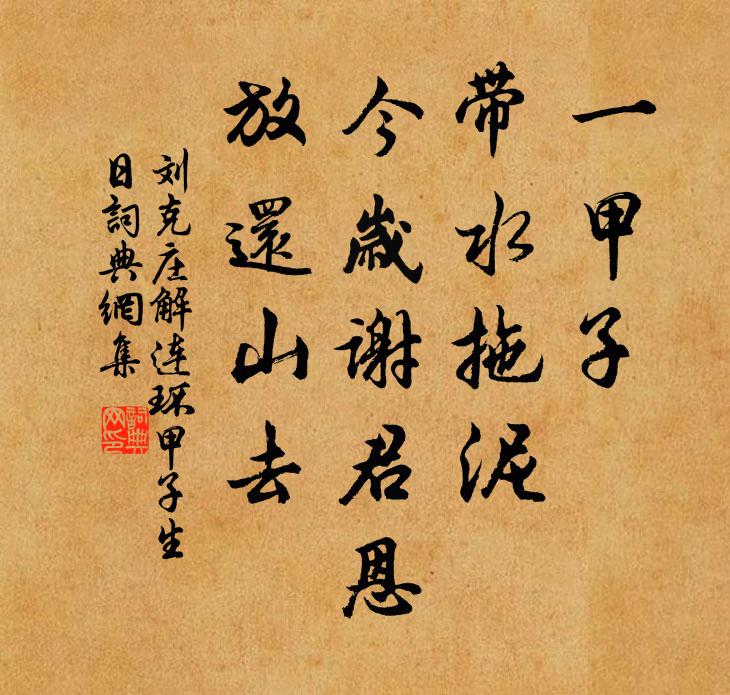 一甲子
带水拖泥
今歲谢君恩
放還山去
刘克庄解连环甲子生
日詞典網集
詞典网印